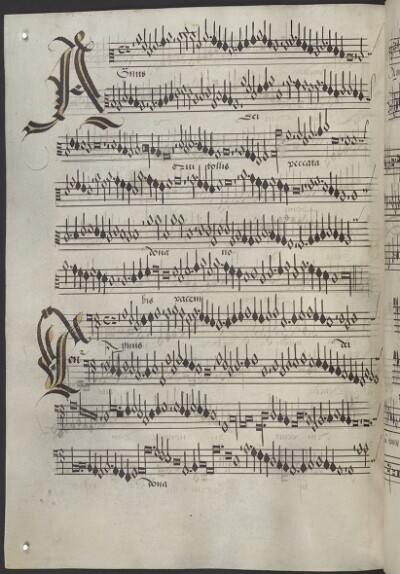 Agnus
dei
Qui tollis peccata
dona no
bis pacem
Ten
Agnus dei
dona